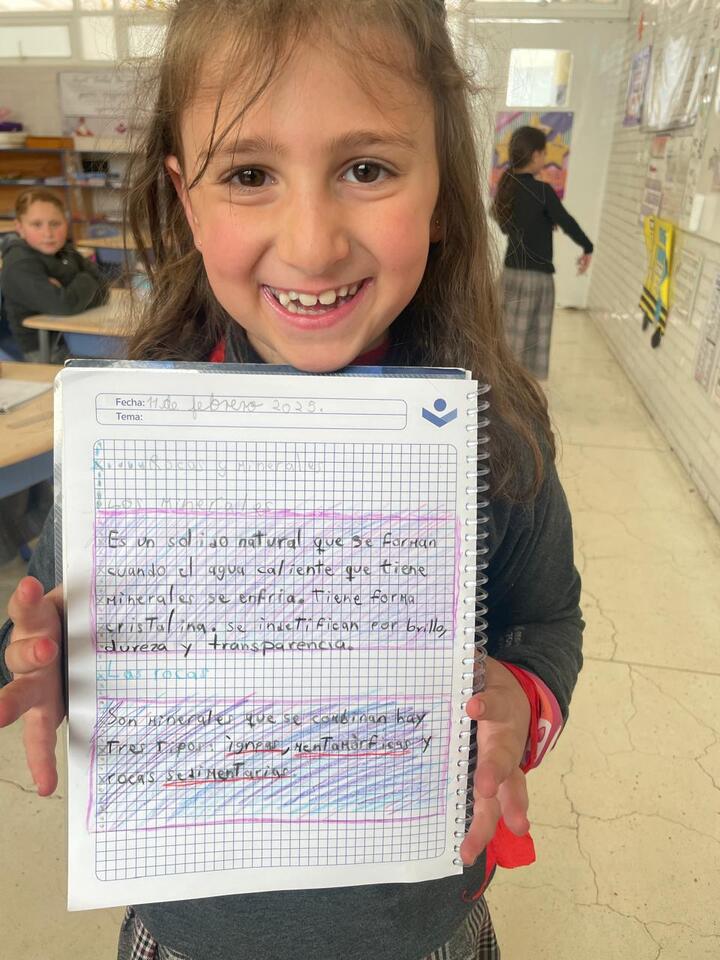 Fecha: 11 de febrero 2025.
Tema:
Rocas y Minerales
Los Minerales
Es un solido natural que se forman
cuando el agua caliente que tiene
Minerales se enfria. Tiene forma
cristalina. se indetifican por brillo,
dureza y transparencia.
Las rocas
Son Minerales que se combinan hay
Tres Tipos: igneas, MenTamòrficas y
rocas sediMenTarias.